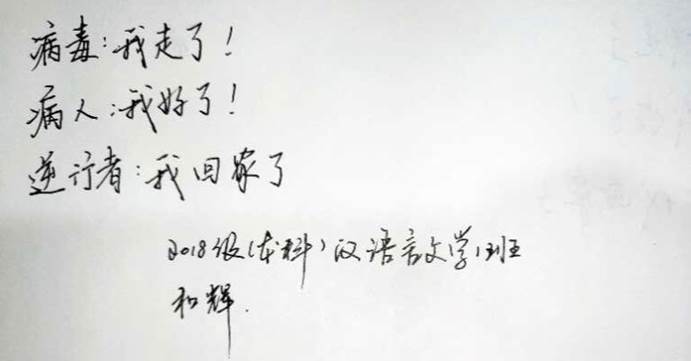 病毒:我走了!
病人:我好了!
逆行者:我回家了
2018级(本科)汉语言文学1班
和辉.